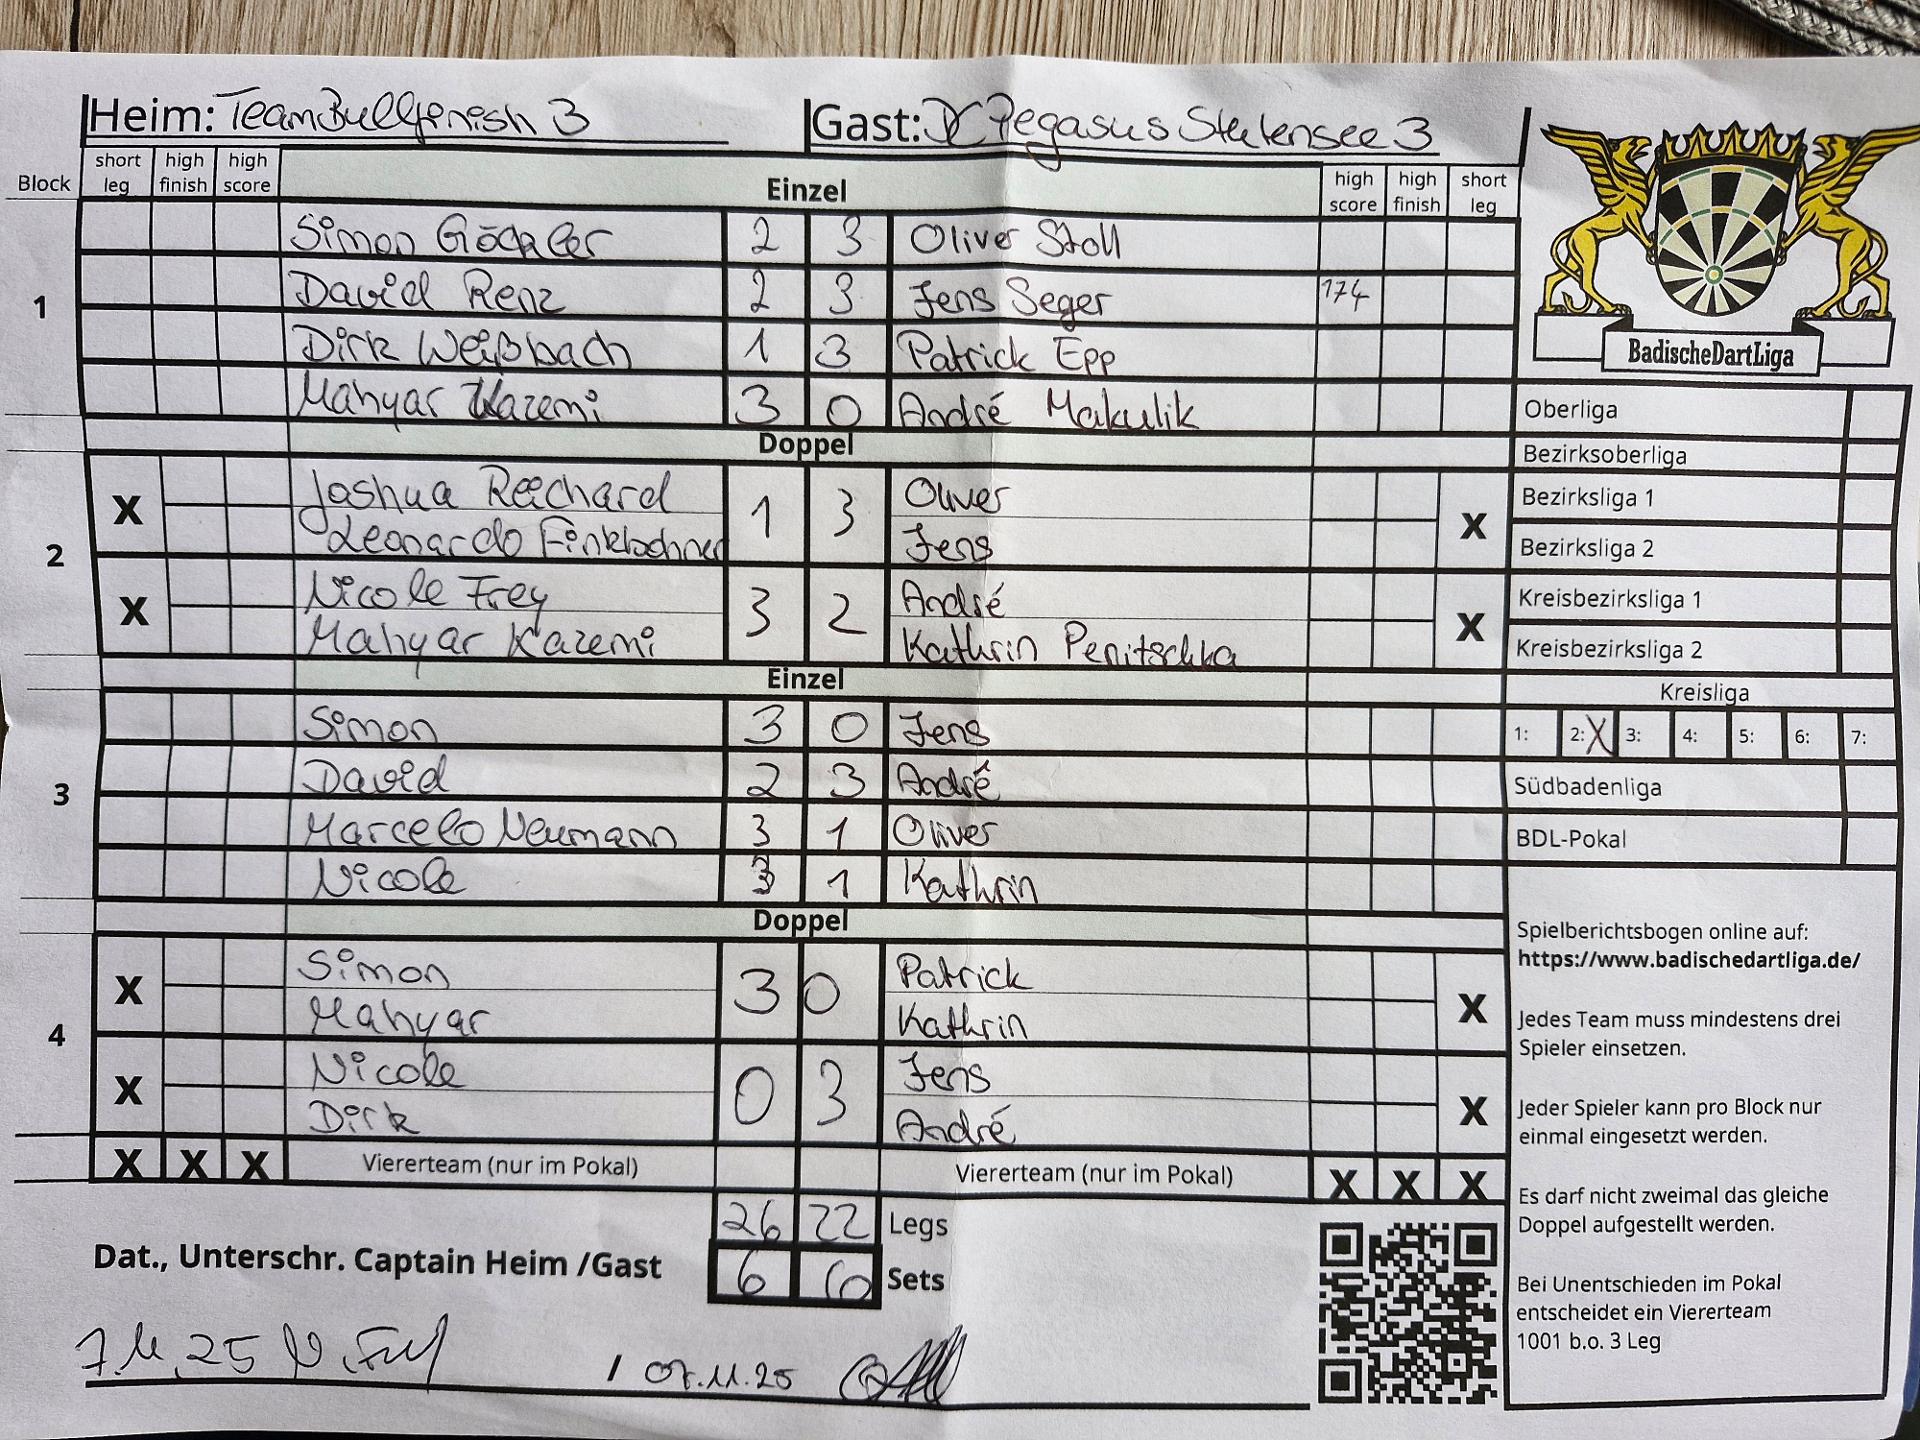 Heim: TeamBullfinish 3 Gast: DC Pegasus Stutensee 3
Block short leg high finish high score Einzel high score high finish short leg
1
Simon Göckler 2 3 Oliver Stoll
David Renz 2 3 Jens Seger 174
Dirk Weißbach 1 3 Patrick Epp
Mahyar Kazemi 3 0 André Makulik
Doppel
2
X Joshua Reichard 1 3 Oliver X
Leonardo Finkbohner Jens
X Nicole Frey 3 2 André X
Mahyar Kazemi Kathrin Penitschka
Einzel
3
Simon 3 0 Jens
David 2 3 André
Marcelo Neumann 3 1 Oliver
Nicole 3 1 Kathrin
Doppel
4
X Simon 3 0 Patrick X
Mahyar Kathrin
X Nicole 0 3 Jens X
Dirk André
X X X Viererteam (nur im Pokal) Viererteam (nur im Pokal) X X X
26 22 Legs
Dat., Unterschr. Captain Heim /Gast 6 Sets
7.11.25 / 07.11.25
BadischeDartLiga
Oberliga
Bezirksoberliga
Bezirksliga 1
Bezirksliga 2
Kreisbezirksliga 1
Kreisbezirksliga 2
Kreisliga
1: 2: X 3: 4: 5: 6: 7:
Südbadenliga
BDL-Pokal
Spielberichtsbogen online auf:
https://www.badischedartliga.de/
Jedes Team muss mindestens drei
Spieler einsetzen.
Jeder Spieler kann pro Block nur
einmal eingesetzt werden.
Es darf nicht zweimal das gleiche
Doppel aufgestellt werden.
Bei Unentschieden im Pokal
entscheidet ein Viererteam
1001 b.o. 3 Leg